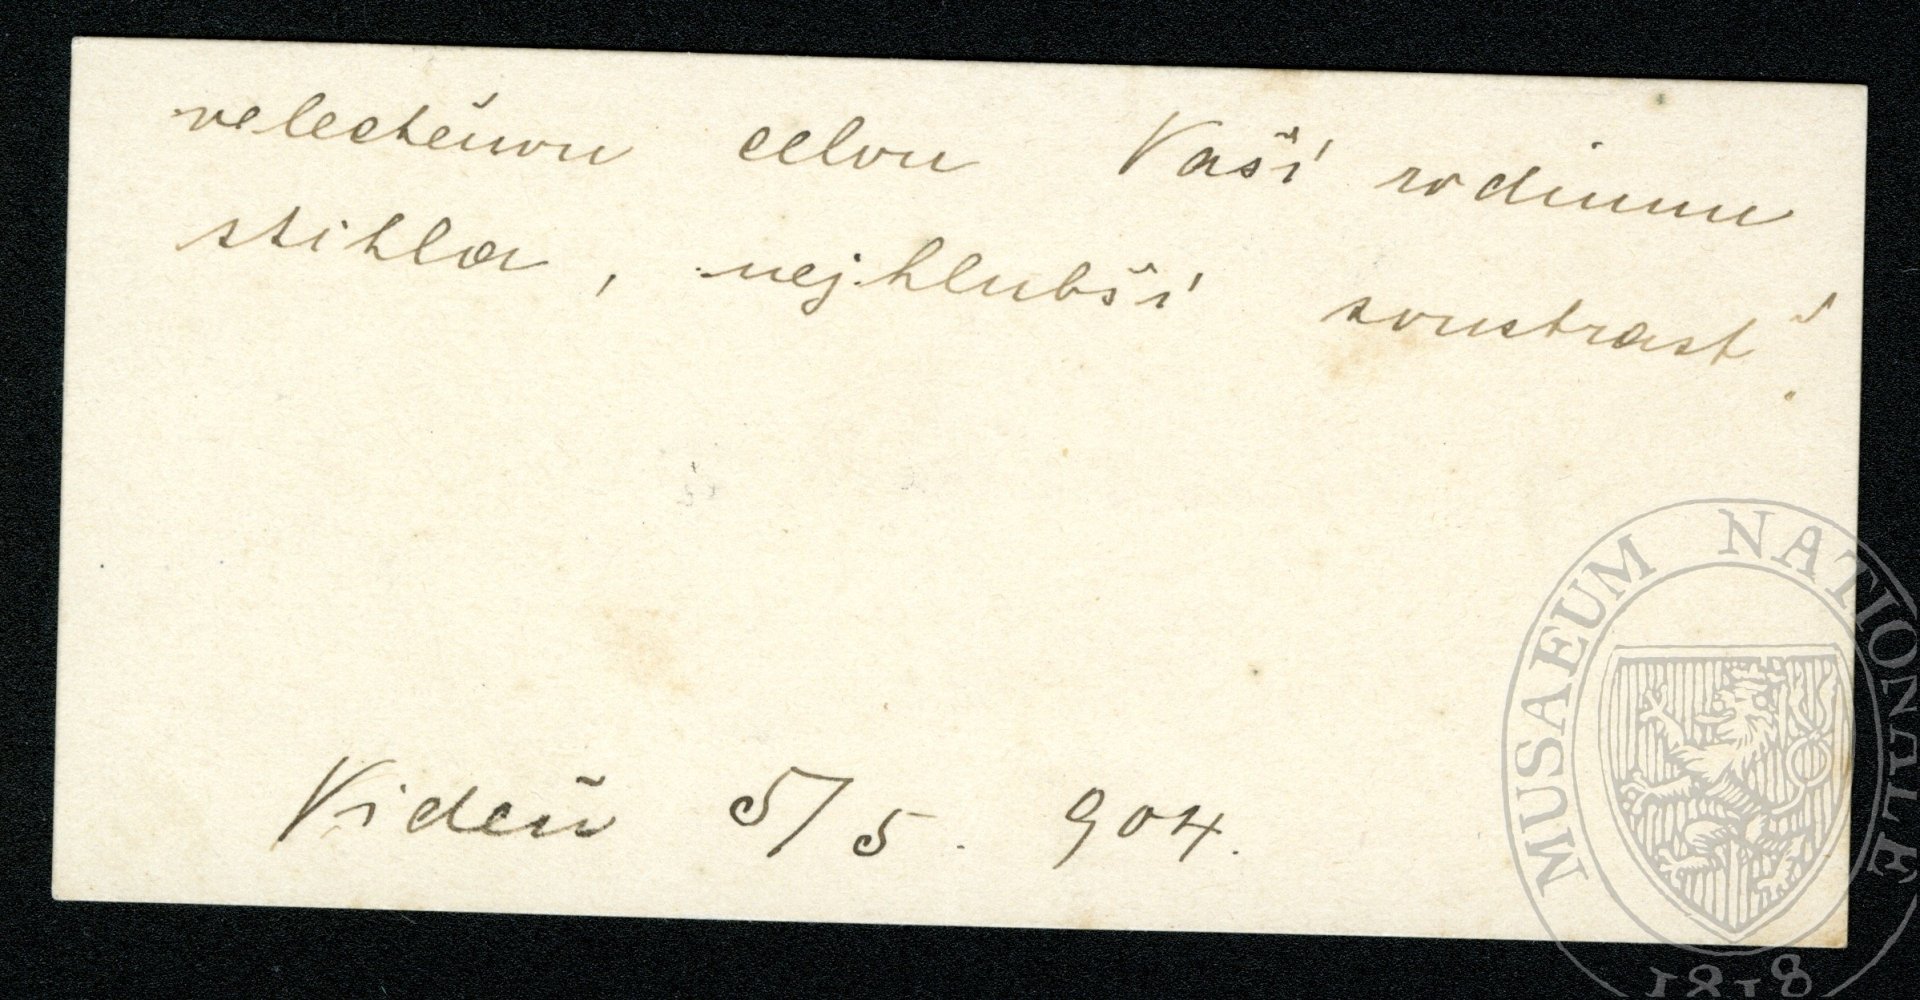 velectěnou celou Vaší rodinu
stihla, nejhlubší soustrast'.
Videň 5/5. 904.
MUSAEUM NATIONALE
1818